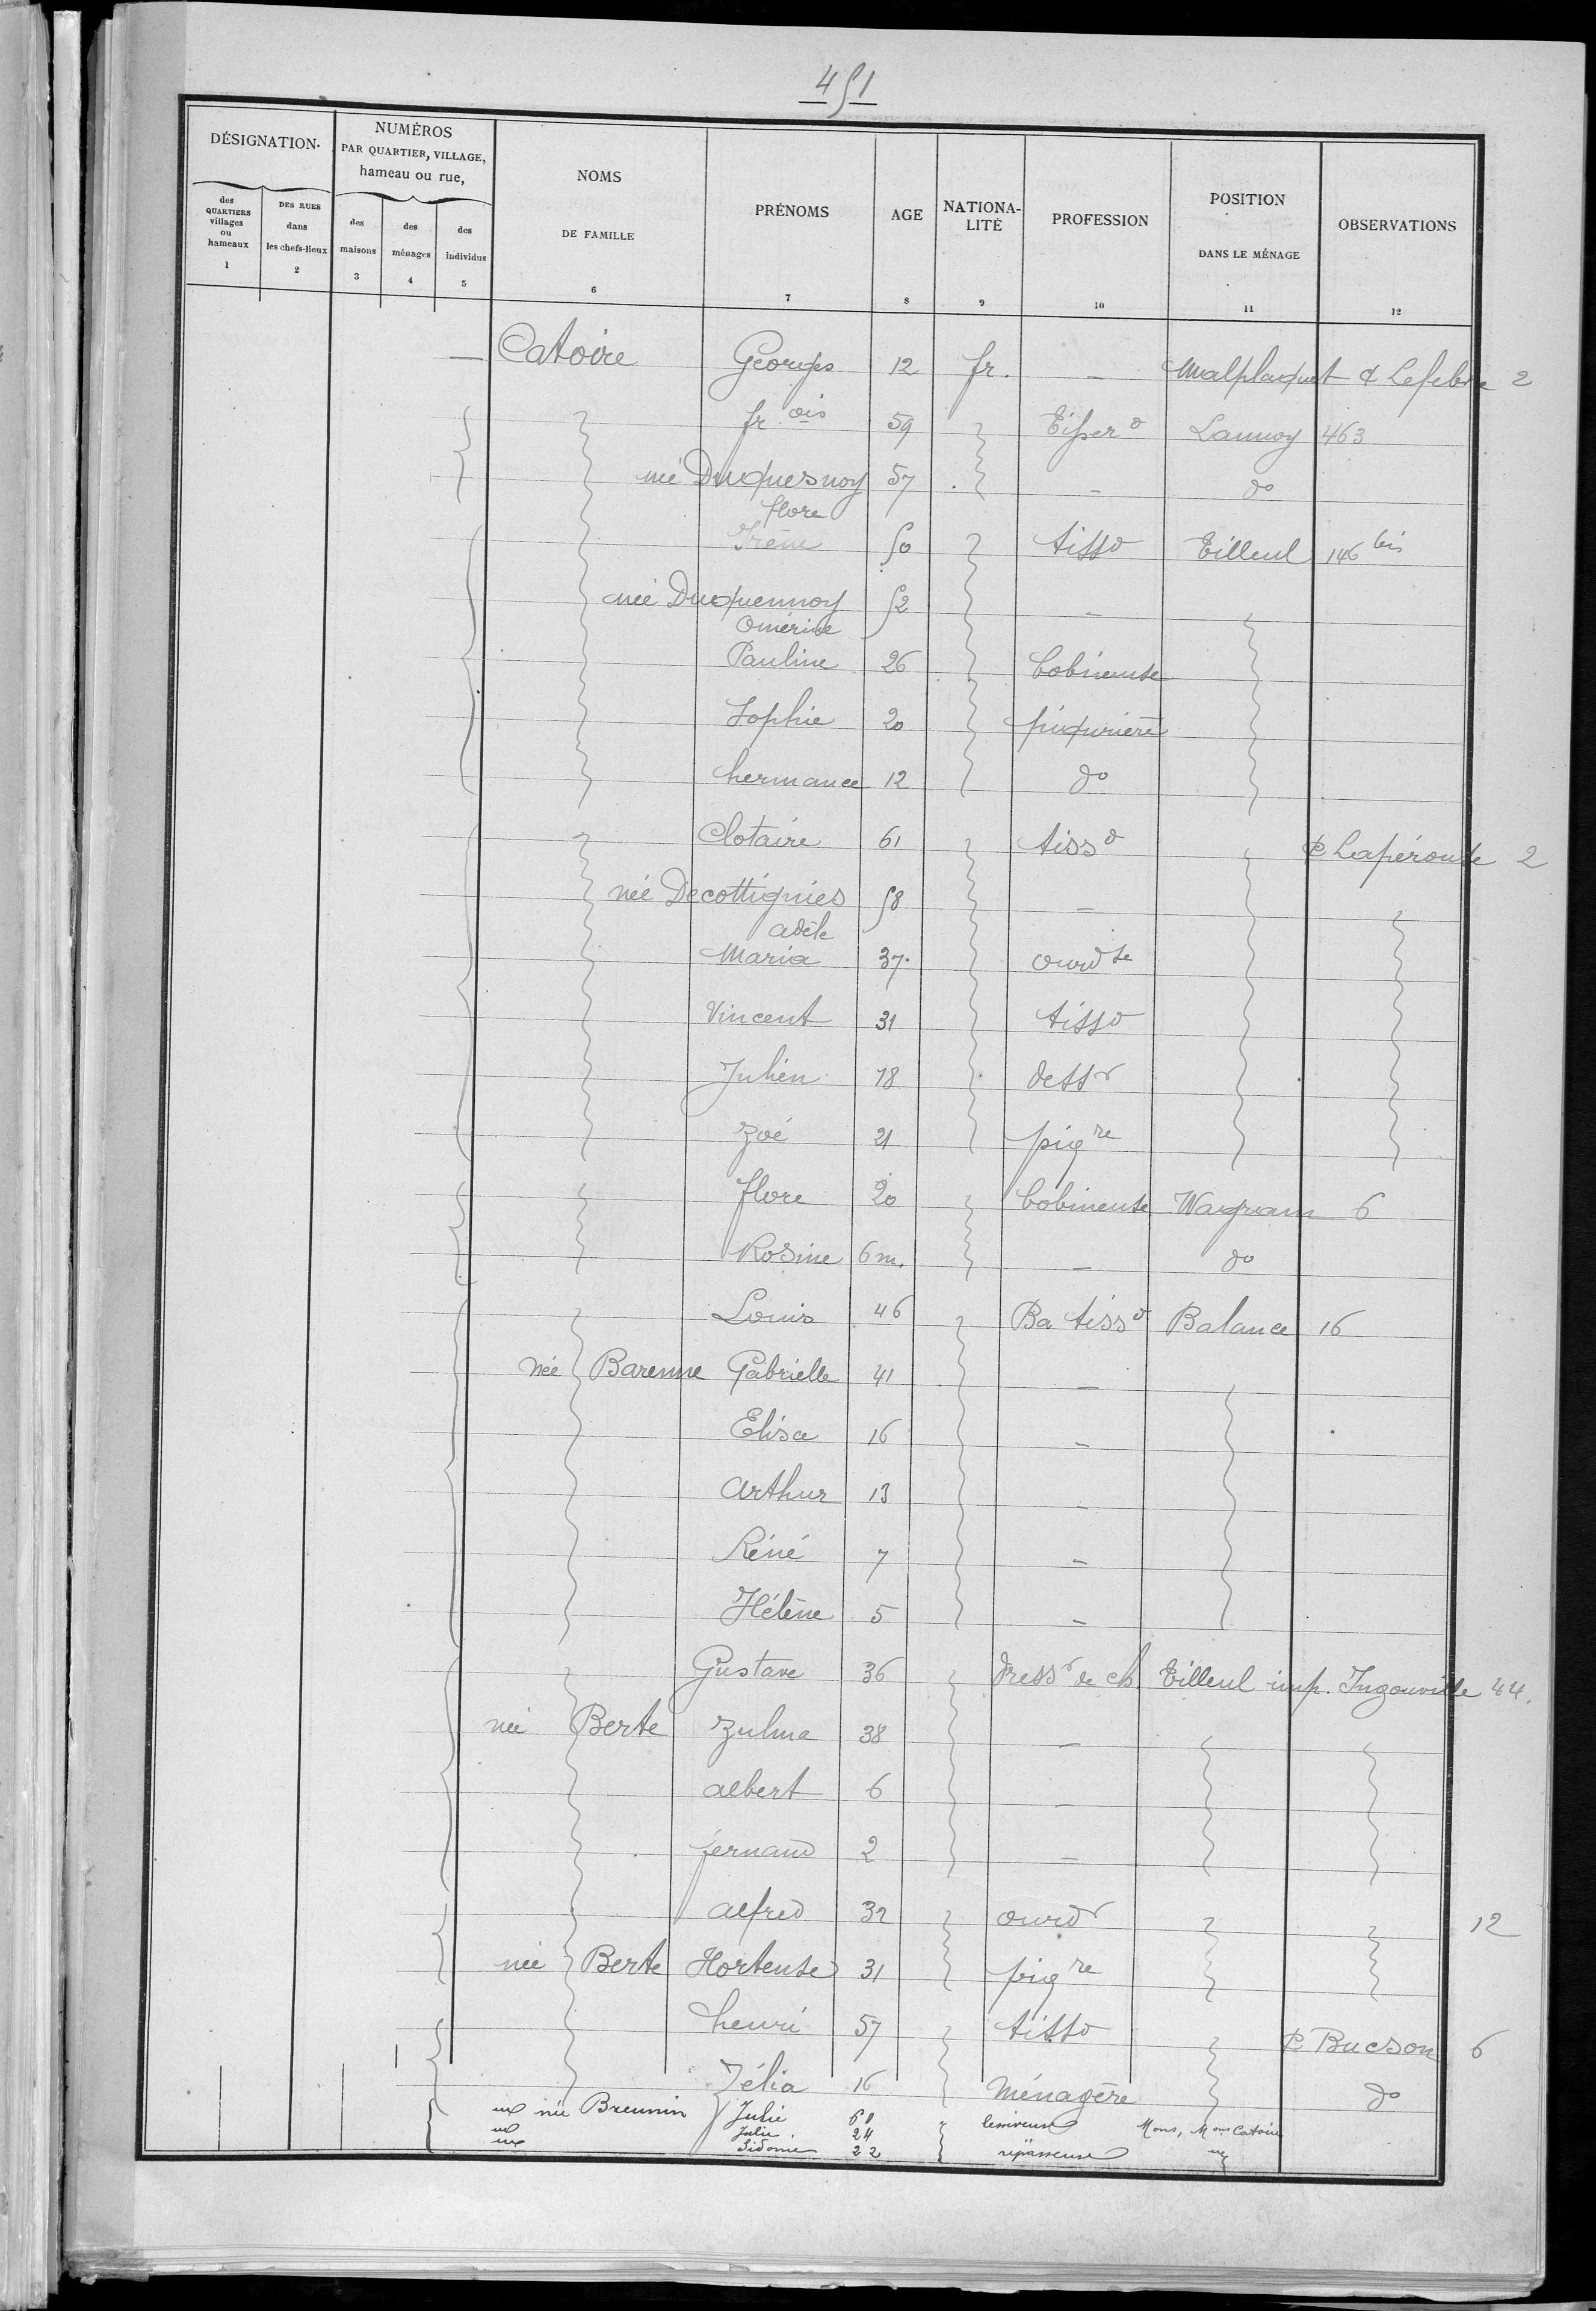 451
DÉSIGNATION
NUMÉROS PAR QUARTIER, VILLAGE, hameau ou rue,
NOMS DE FAMILLE
PRÉNOMS
AGE
NATIONALITÉ
PROFESSION
POSITION DANS LE MÉNAGE
OBSERVATIONS
des QUARTIERS villages ou hameaux
DES RUES dans les chefs-lieux
des maisons
des ménages
des individus
1 2 3 4 5 6 7 8 9 10 11 12
— Catoire Georges 12 fr. — Malplaquet & Lefebvre 2
frois 59 Tisserd Lannoy 463
née Duquesnoy flore 57 — do
Irène 50 tissd Tilleul 146 bis
née Duquennoy Omérine 52 —
Pauline 26 bobineuse
Sophie 20 piqurière
hermance 12 do
Clotaire 61 tissd c Lapérouse 2
née Decottignies adèle 58 —
Maria 37 ourdse
Vincent 31 tissd
Julien 18 dessr
Zoé 21 piqre
flore 20 bobineuse Wagram 6
Rosine 6 m. — do
Louis 46 Ba tissd Balance 16
née Barenne Gabrielle 41 —
Elisa 16 —
Arthur 13 —
Réné 7 —
Hélène 5 —
Gustave 36 dressr de ch. Tilleul imp. Ingouville 44.
née Berte Zulma 38 —
albert 6 —
fernand 2 —
alfred 32 ourdr 12
née Berte Hortense 31 piqre
henri 57 tissd c Bucson 6
Zélia 16 Ménagère do
née Breunin Julie 60 lessiveuse Mons, Mons Catoire
Julie 24
Sidonie 22 repasseuse